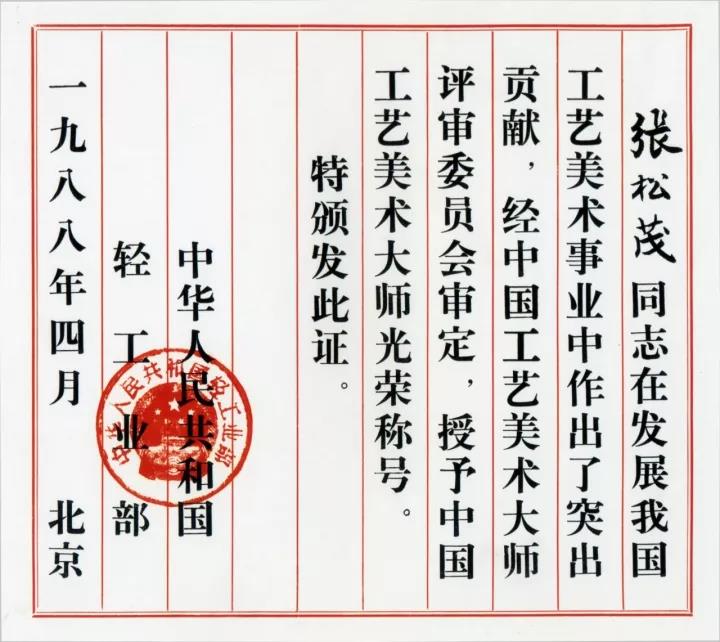 张松茂同志在发展我国
工艺美术事业中作出了突出
贡献，经中国工艺美术大师
评审委员会审定，授予中国
工艺美术大师光荣称号。
特颁发此证。
中华人民共和国
轻工业部
一九八八年四月 北京
中华人民共和国轻工业部